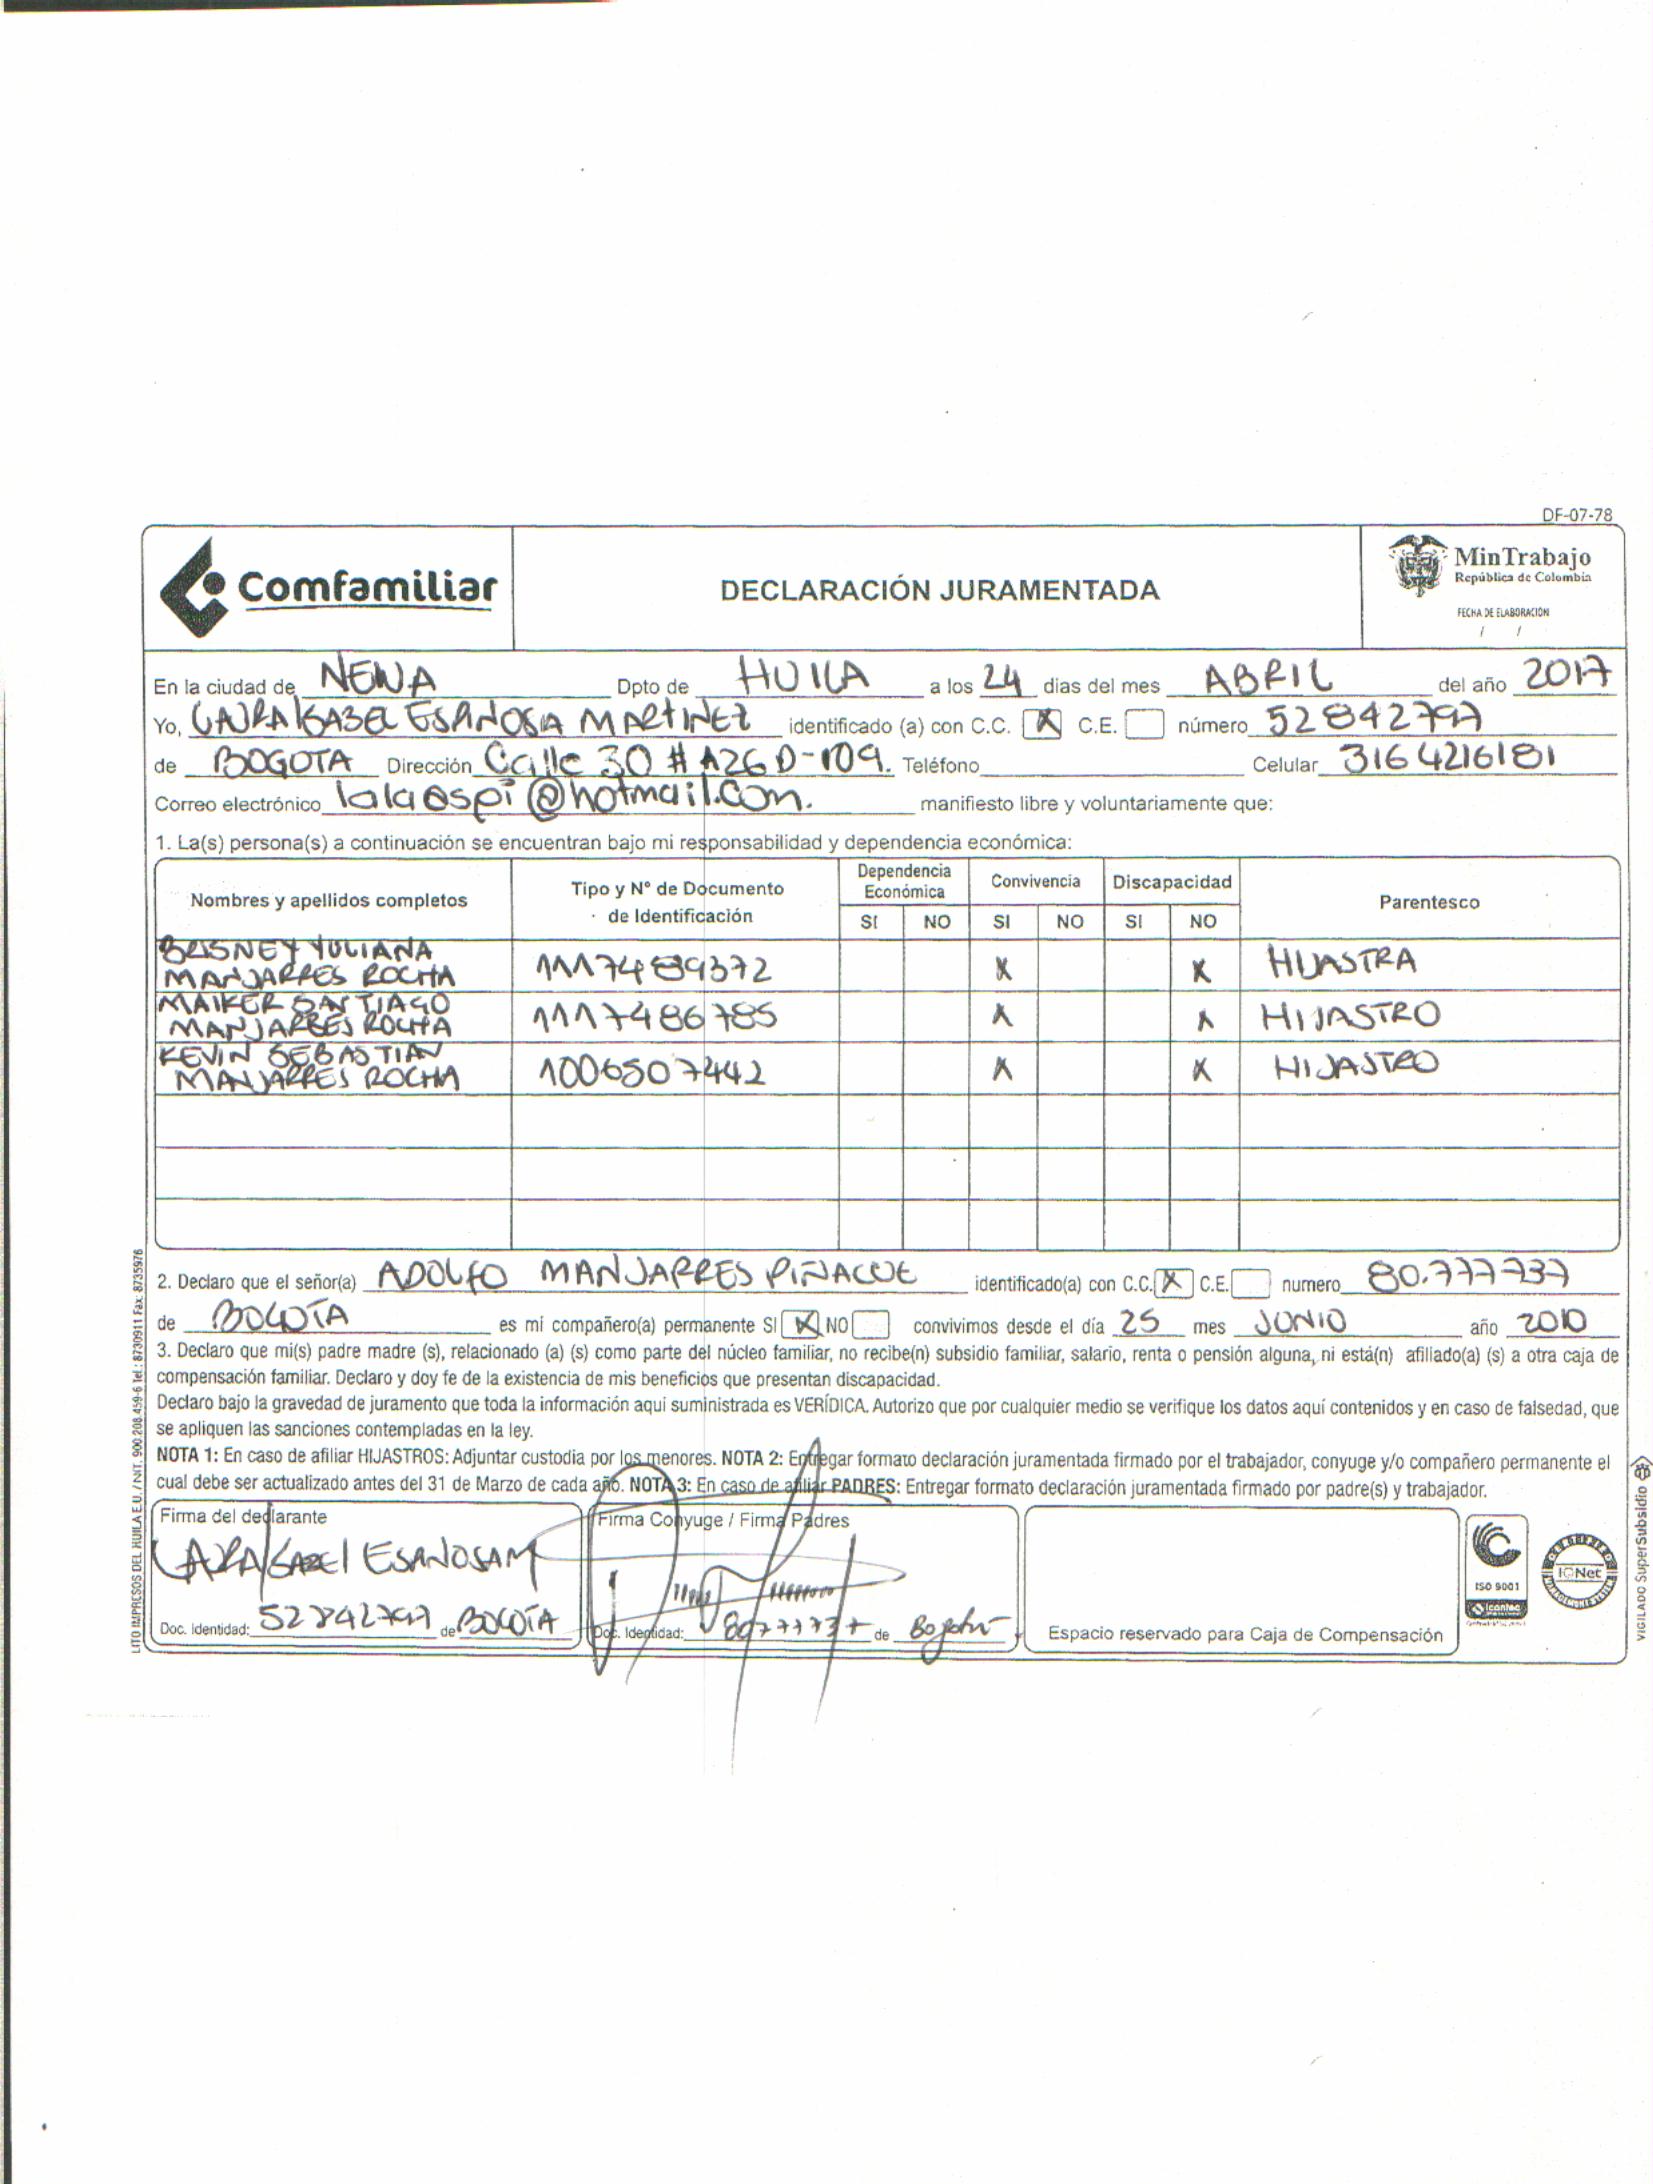 DF-07-78
Comfamiliar
DECLARACIÓN JURAMENTADA
MinTrabajo
República de Colombia
FECHA DE ELABORACIÓN
/ /
En la ciudad de NEIVA Dpto de HUILA a los 24 dias del mes ABRIL del año 2017
Yo, LAURA ISABEL ESPINOSA MARTINEZ identificado (a) con C.C. X C.E. número 52842797
de BOGOTA Dirección Calle 30 # A26D-109. Teléfono Celular 3164216181
Correo electrónico lalaespi@hotmail.com. manifiesto libre y voluntariamente que:
1. La(s) persona(s) a continuación se encuentran bajo mi responsabilidad y dependencia económica:
Nombres y apellidos completos Tipo y N° de Documento de Identificación Dependencia Económica Convivencia Discapacidad Parentesco
SI NO SI NO SI NO
BRISNEY YULIANA
MANJARRES ROCHA 1117489372 X X HIJASTRA
MAIKER SANTIAGO
MANJARRES ROCHA 1117486785 X X HIJASTRO
KEVIN SEBASTIAN
MANJARRES ROCHA 1006507442 X X HIJASTRO
2. Declaro que el señor(a) ADOLFO MANJARRES PIÑACUE identificado(a) con C.C. X C.E. numero 80.777737
de BOGOTA es mi compañero(a) permanente SI X NO convivimos desde el día 25 mes JUNIO año 2010
3. Declaro que mi(s) padre madre (s), relacionado (a) (s) como parte del núcleo familiar, no recibe(n) subsidio familiar, salario, renta o pensión alguna, ni está(n) afiliado(a) (s) a otra caja de
compensación familiar. Declaro y doy fe de la existencia de mis beneficios que presentan discapacidad.
Declaro bajo la gravedad de juramento que toda la información aqui suministrada es VERÍDICA. Autorizo que por cualquier medio se verifique los datos aquí contenidos y en caso de falsedad, que
se apliquen las sanciones contempladas en la ley.
NOTA 1: En caso de afiliar HIJASTROS: Adjuntar custodia por los menores. NOTA 2: Entregar formato declaración juramentada firmado por el trabajador, conyuge y/o compañero permanente el
cual debe ser actualizado antes del 31 de Marzo de cada año. NOTA 3: En caso de afiliar PADRES: Entregar formato declaración juramentada firmado por padre(s) y trabajador.
Firma del declarante Firma Conyuge / Firma Padres
LAURA ISABEL ESPINOSA M
Doc. Identidad: 52842797 de BOGOTA Doc. Identidad: 80777737 de Bogotá Espacio reservado para Caja de Compensación
ISO 9001
icontec
IQNet
LITO IMPRESOS DEL HUILA E.U. / NIT. 900.208.459-6 Tel.: 8730911 Fax: 8735976
VIGILADO SuperSubsidio